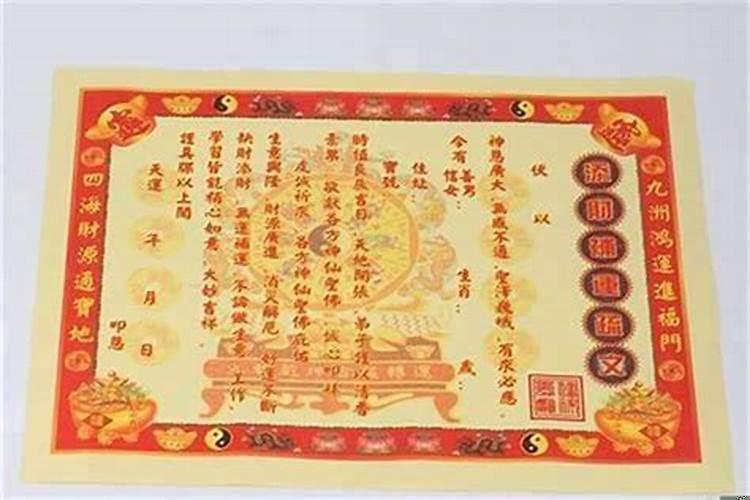 九洲鴻運進福門
添財補運疏文
伏以
神恩廣大 無感不通 聖澤巍峨 有求必應
今有善男信女: 生肖: 歲:
住址:
寶號
時值良辰吉日 天地開張 弟子謹以清香
素果 敬獻各方神仙聖佛 誠心叩拜
虔誠祈求 各方神仙聖佛庇佑
生意興隆 財源廣進 消災解厄 好運不斷
缺財添財 無運補運 不論做生意 工作、
學習皆能稱心如意 大妙吉祥、
謹具疏以上聞
天運 年 月 日 叩懇
四海財源通寶地